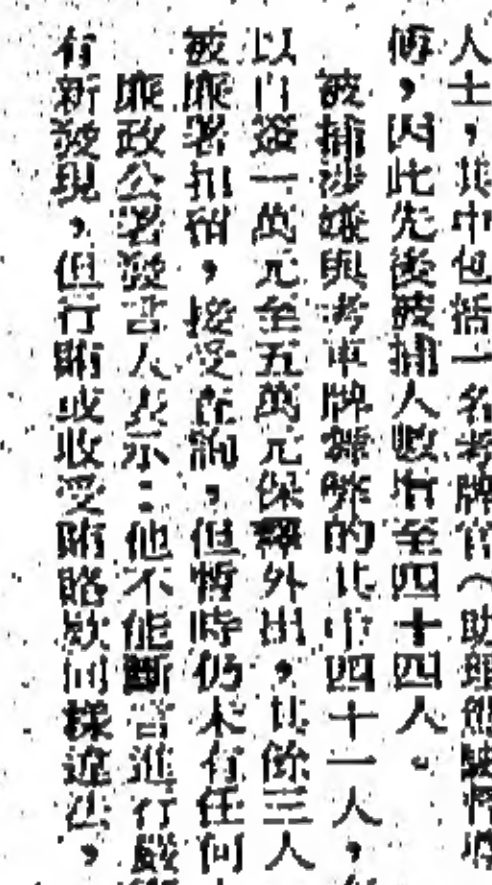 人士，其中包括一名考牌官（助理
，因此先後被捕人數增至四十四人。
被捕涉嫌與考車牌舞弊的其中四十一人，
以自簽一萬元至五萬元保釋外出，其餘三人
被廉署扣留，接受查詢，但暫時仍未有任何
廉政公署發言人表示：他不能斷言進行
有新發現，但行賄或收受賄賂款同樣違法，